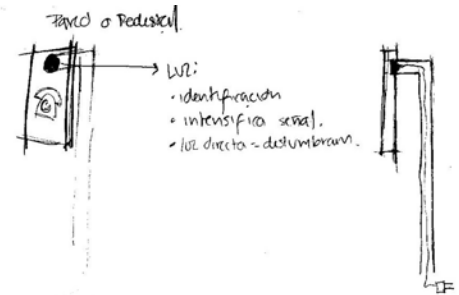 Pared o Pedestal.
LUZ:
• identificación
• intensifica señal.
• luz directa = deslumbram.